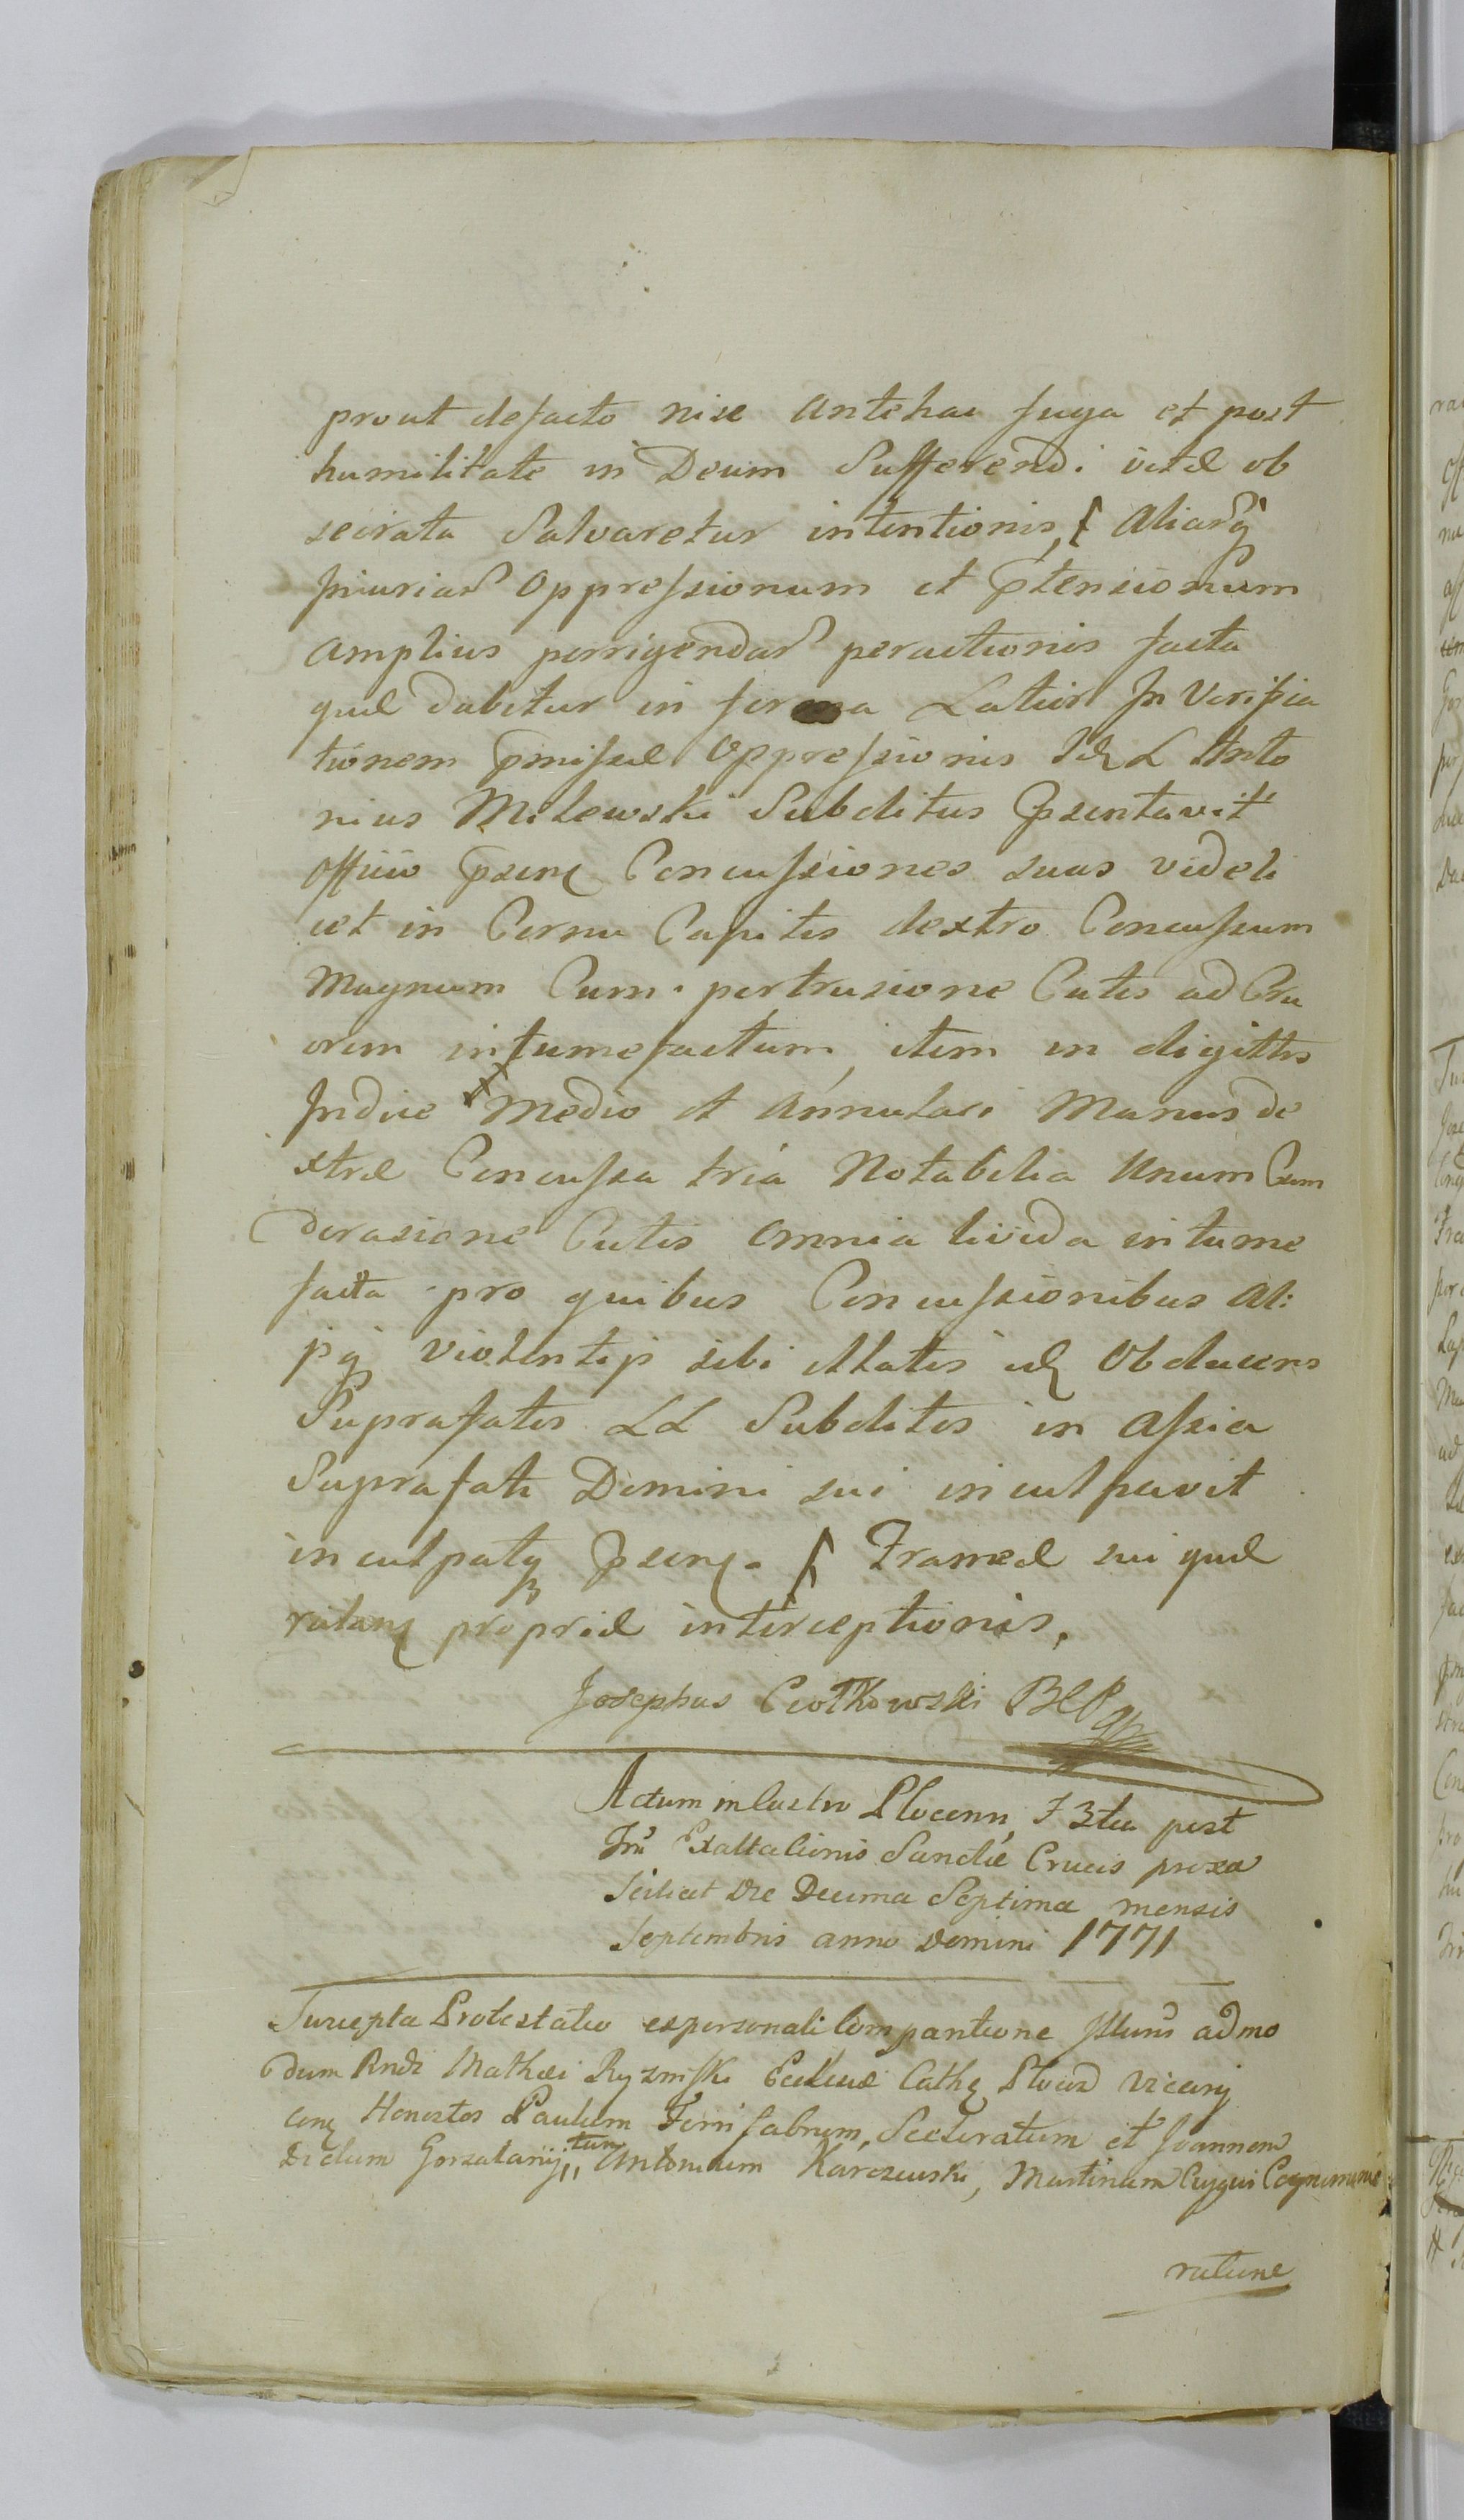 prout defacto nise antehac fuga et post
humilitate in Deum Sufferendi vitæ ob
secrata Salvaretur intentionis, Aliarq
Iniuriar Oppressionum et Ptensionum
amplius porrigendar peractionis facta
quæ dabitur in forma Latiori In Verifica
tionem Pmissæ Oppressionis Idq L Anto
nius Milewski Subditus Psentavit
Officio Psenq Concussiones suas videli
cet in Cornu Capitis dextro Concussum
Magnum Cum pertrusione Cutis ad Cru
orem intumefactum, item in digittis
Indice Medio et Annulari Manus de
xtræ Concussa tria Notabilia Unum Cum
derasione Cutis Omnia livida intume
facta pro quibus Concussionibus Al:
ijsq violentijs sibi illatis idq Obducens
Suprafatos LL Subditos in Assia
Suprafati Domini sui inculpavit
inculpatq Psenq. Trameæ sui quæ
ritanq propriæ interceptionis.
Josephus Ciołkowski BCP
Actum in Castro Plocenn, F 3tia post
Ftū Exaltationis Sanctæ Crucis proxa
Scilicet Die Decima Septima mensis
Septembris anno Domini 1771
Suscepta Protestatio ex personali Comparitione Illuris admo
dum Rndi Mathæi Ryzinski Ecclesiæ Cathq Plocen Vicarij
conq Honestos Paulum Ferri fabrum, Sceleratum et Joannem
Dictum Gorzalanij, tum Antonium Karczewski, Martinum Cognomine
ratione